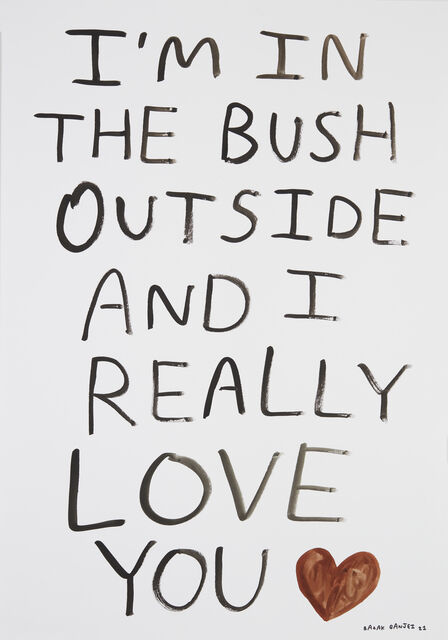 I'M IN
THE BUSH
OUTSIDE
AND I
REALLY
LOVE
YOU
BABAK GANJEI 22